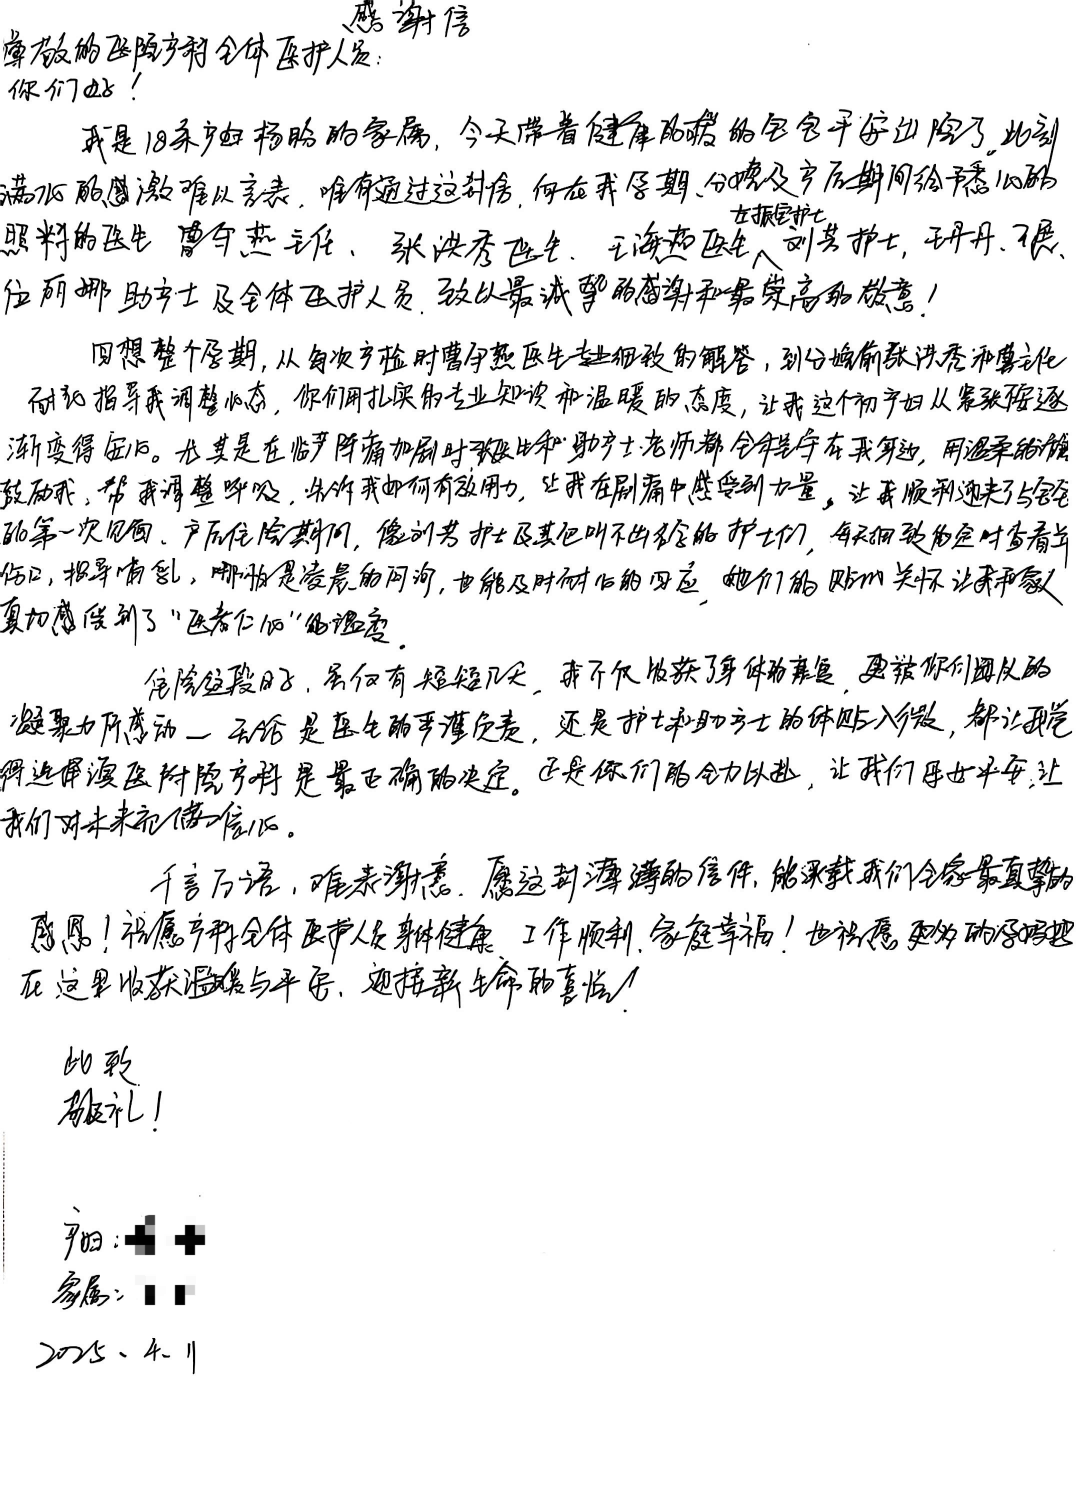 感谢信
尊敬的医院产科全体医护人员：
你们好！
我是18床产妇杨盼的家属，今天带着健康的我的宝宝平安出院了。此刻
满心的感激难以言表，唯有通过这封信，向在我孕期、分娩及产后期间给予悉心的
照料的医生曹伊燕主任、张洪秀医生、王海燕医生、刘芸护士，王丹丹、王晨、
位丽娜助产士及全体医护人员，致以最诚挚的感谢和最崇高的敬意！
回想整个孕期，从每次产检时曹伊燕医生专业细致的解答，到分娩前张洪秀和曹主任
耐心指导我调整心态，你们用扎实的专业知识和温暖的态度，让我这个初产妇从紧张逐
渐变得安心。尤其是在临产阵痛加剧时张医生和助产士老师都全程守在我身边，用温柔的
鼓励我，帮我调整呼吸，告诉我如何有效用力，让我在剧痛中感受到力量。让我顺利迎来了与宝宝
的第一次见面、产后住院期间，像刘芸护士及其他叫不出名的护士们，每天细致的定时查看
伤口，指导哺乳，哪怕是凌晨的问询，也能及时耐心的回应，她们的贴心关怀让我和家人
真切感受到了“医者仁心”的温度。
住院这段日子，虽仅有短短几天，我不仅收获了身体的康复，更被你们团队的
凝聚力所感动—无论是医生的严谨负责，还是护士和助产士的体贴入微，都让我觉
得选择滨医附院产科是最正确的决定。还是你们的全力以赴，让我们母女平安，让
我们对未来充满信心。
千言万语，难表谢意，愿这封薄薄的信件，能承载我们全家最真挚的
感恩！祝愿产科全体医护人员身体健康、工作顺利、家庭幸福！也祝愿更多的孕妈妈
在这里收获温暖与平安、迎接新生命的喜悦！
此致
敬礼！
产妇：
家属：
2025、4、11